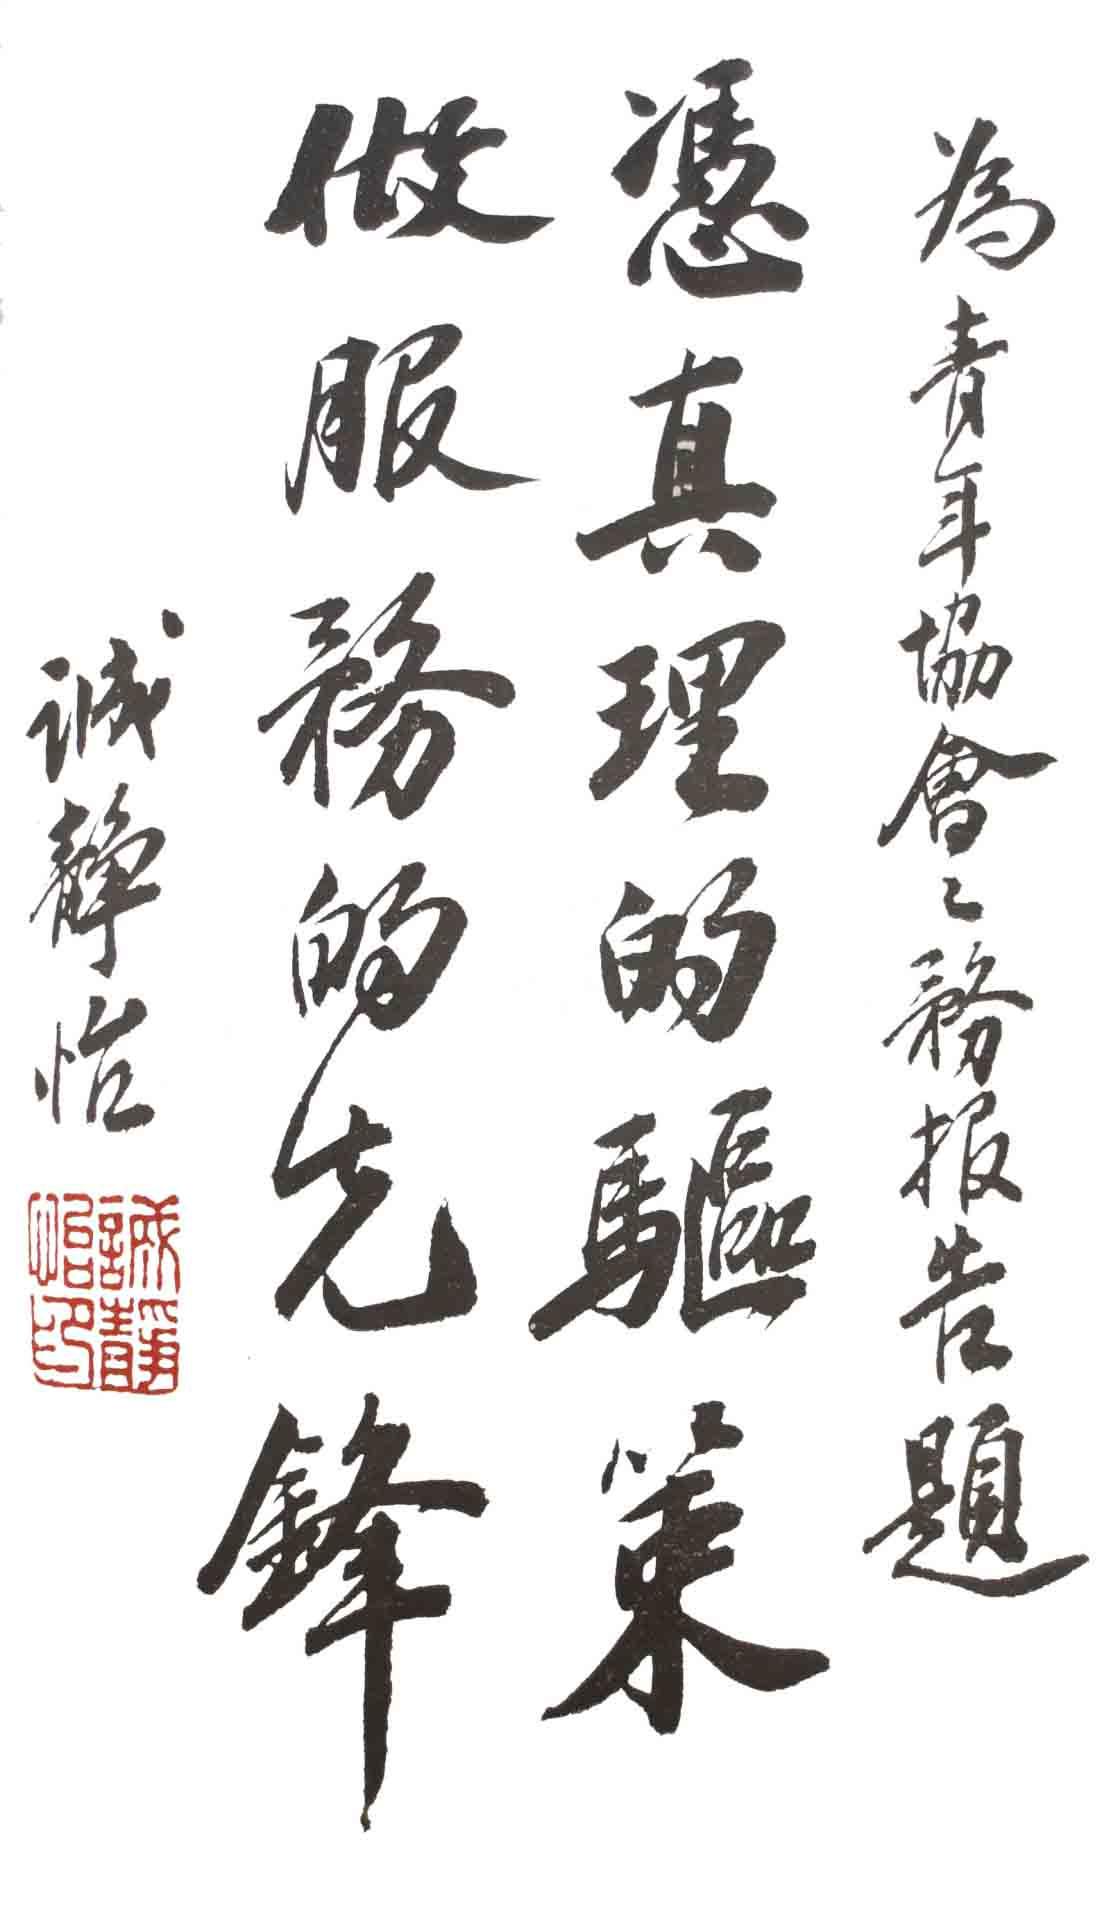 為青年協會之務报告題
憑真理的驅策
做服務的先鋒
誠靜怡
誠靜怡印